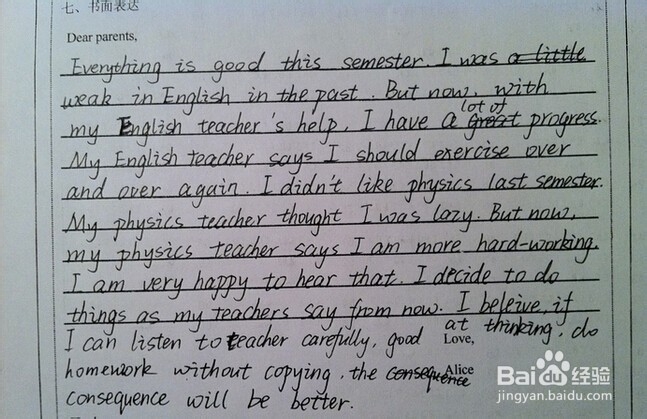 七、书面表达
Dear parents,
Everything is good this semester. I was a little
weak in English in the past. But now, with
my English teacher's help, I have a great lot of progress.
My English teacher says I should exercise over
and over again. I didn't like physics last semester.
My physics teacher thought I was lazy. But now,
my physics teacher says I am more hard-working.
I am very happy to hear that. I decide to do
things as my teachers say from now. I beleive, if
I can listen to teacher carefully, good at thinking, do
Love,
homework without copying, the consequence
Alice
consequence will be better.
Baidu经验
jingyan.baidu.com